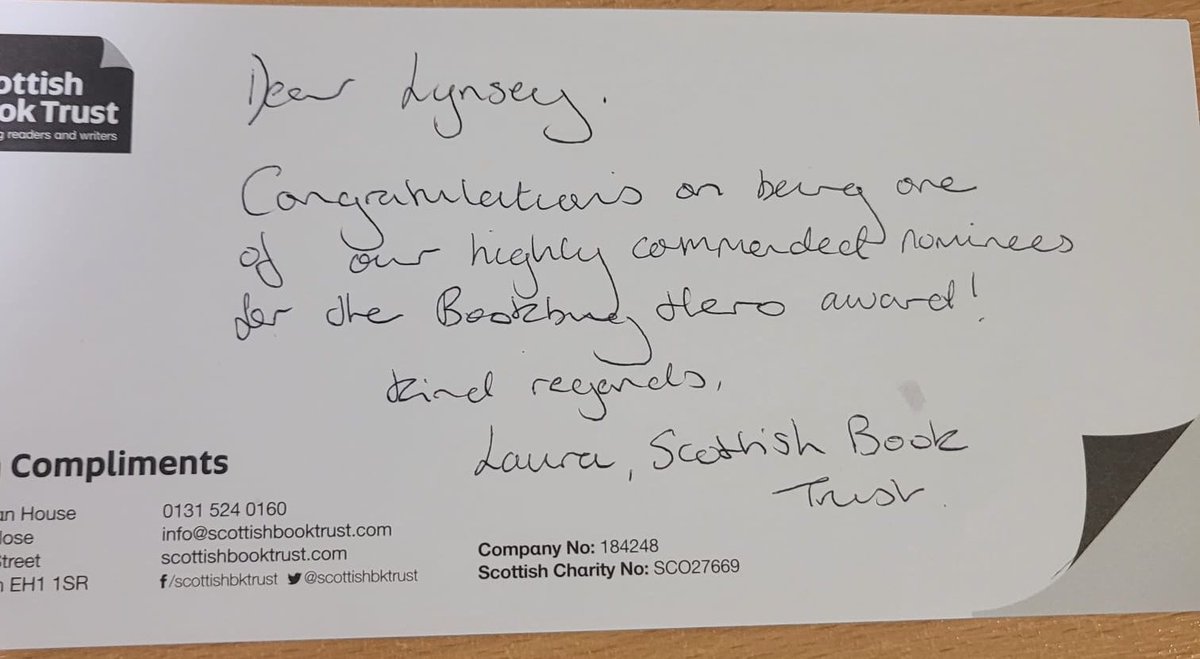 ottish
ok Trust
g readers and writers
Dear Lynsey.
Congratulations on being one
of our highly commended nominees
for the Bookbug Hero award!
Kind regards,
Laura, Scottish Book
Trust.
Compliments
an House
lose
treet
EH1 1SR
0131 524 0160
info@scottishbooktrust.com
scottishbooktrust.com
f/scottishbktrust @scottishbktrust
Company No: 184248
Scottish Charity No: SCO27669